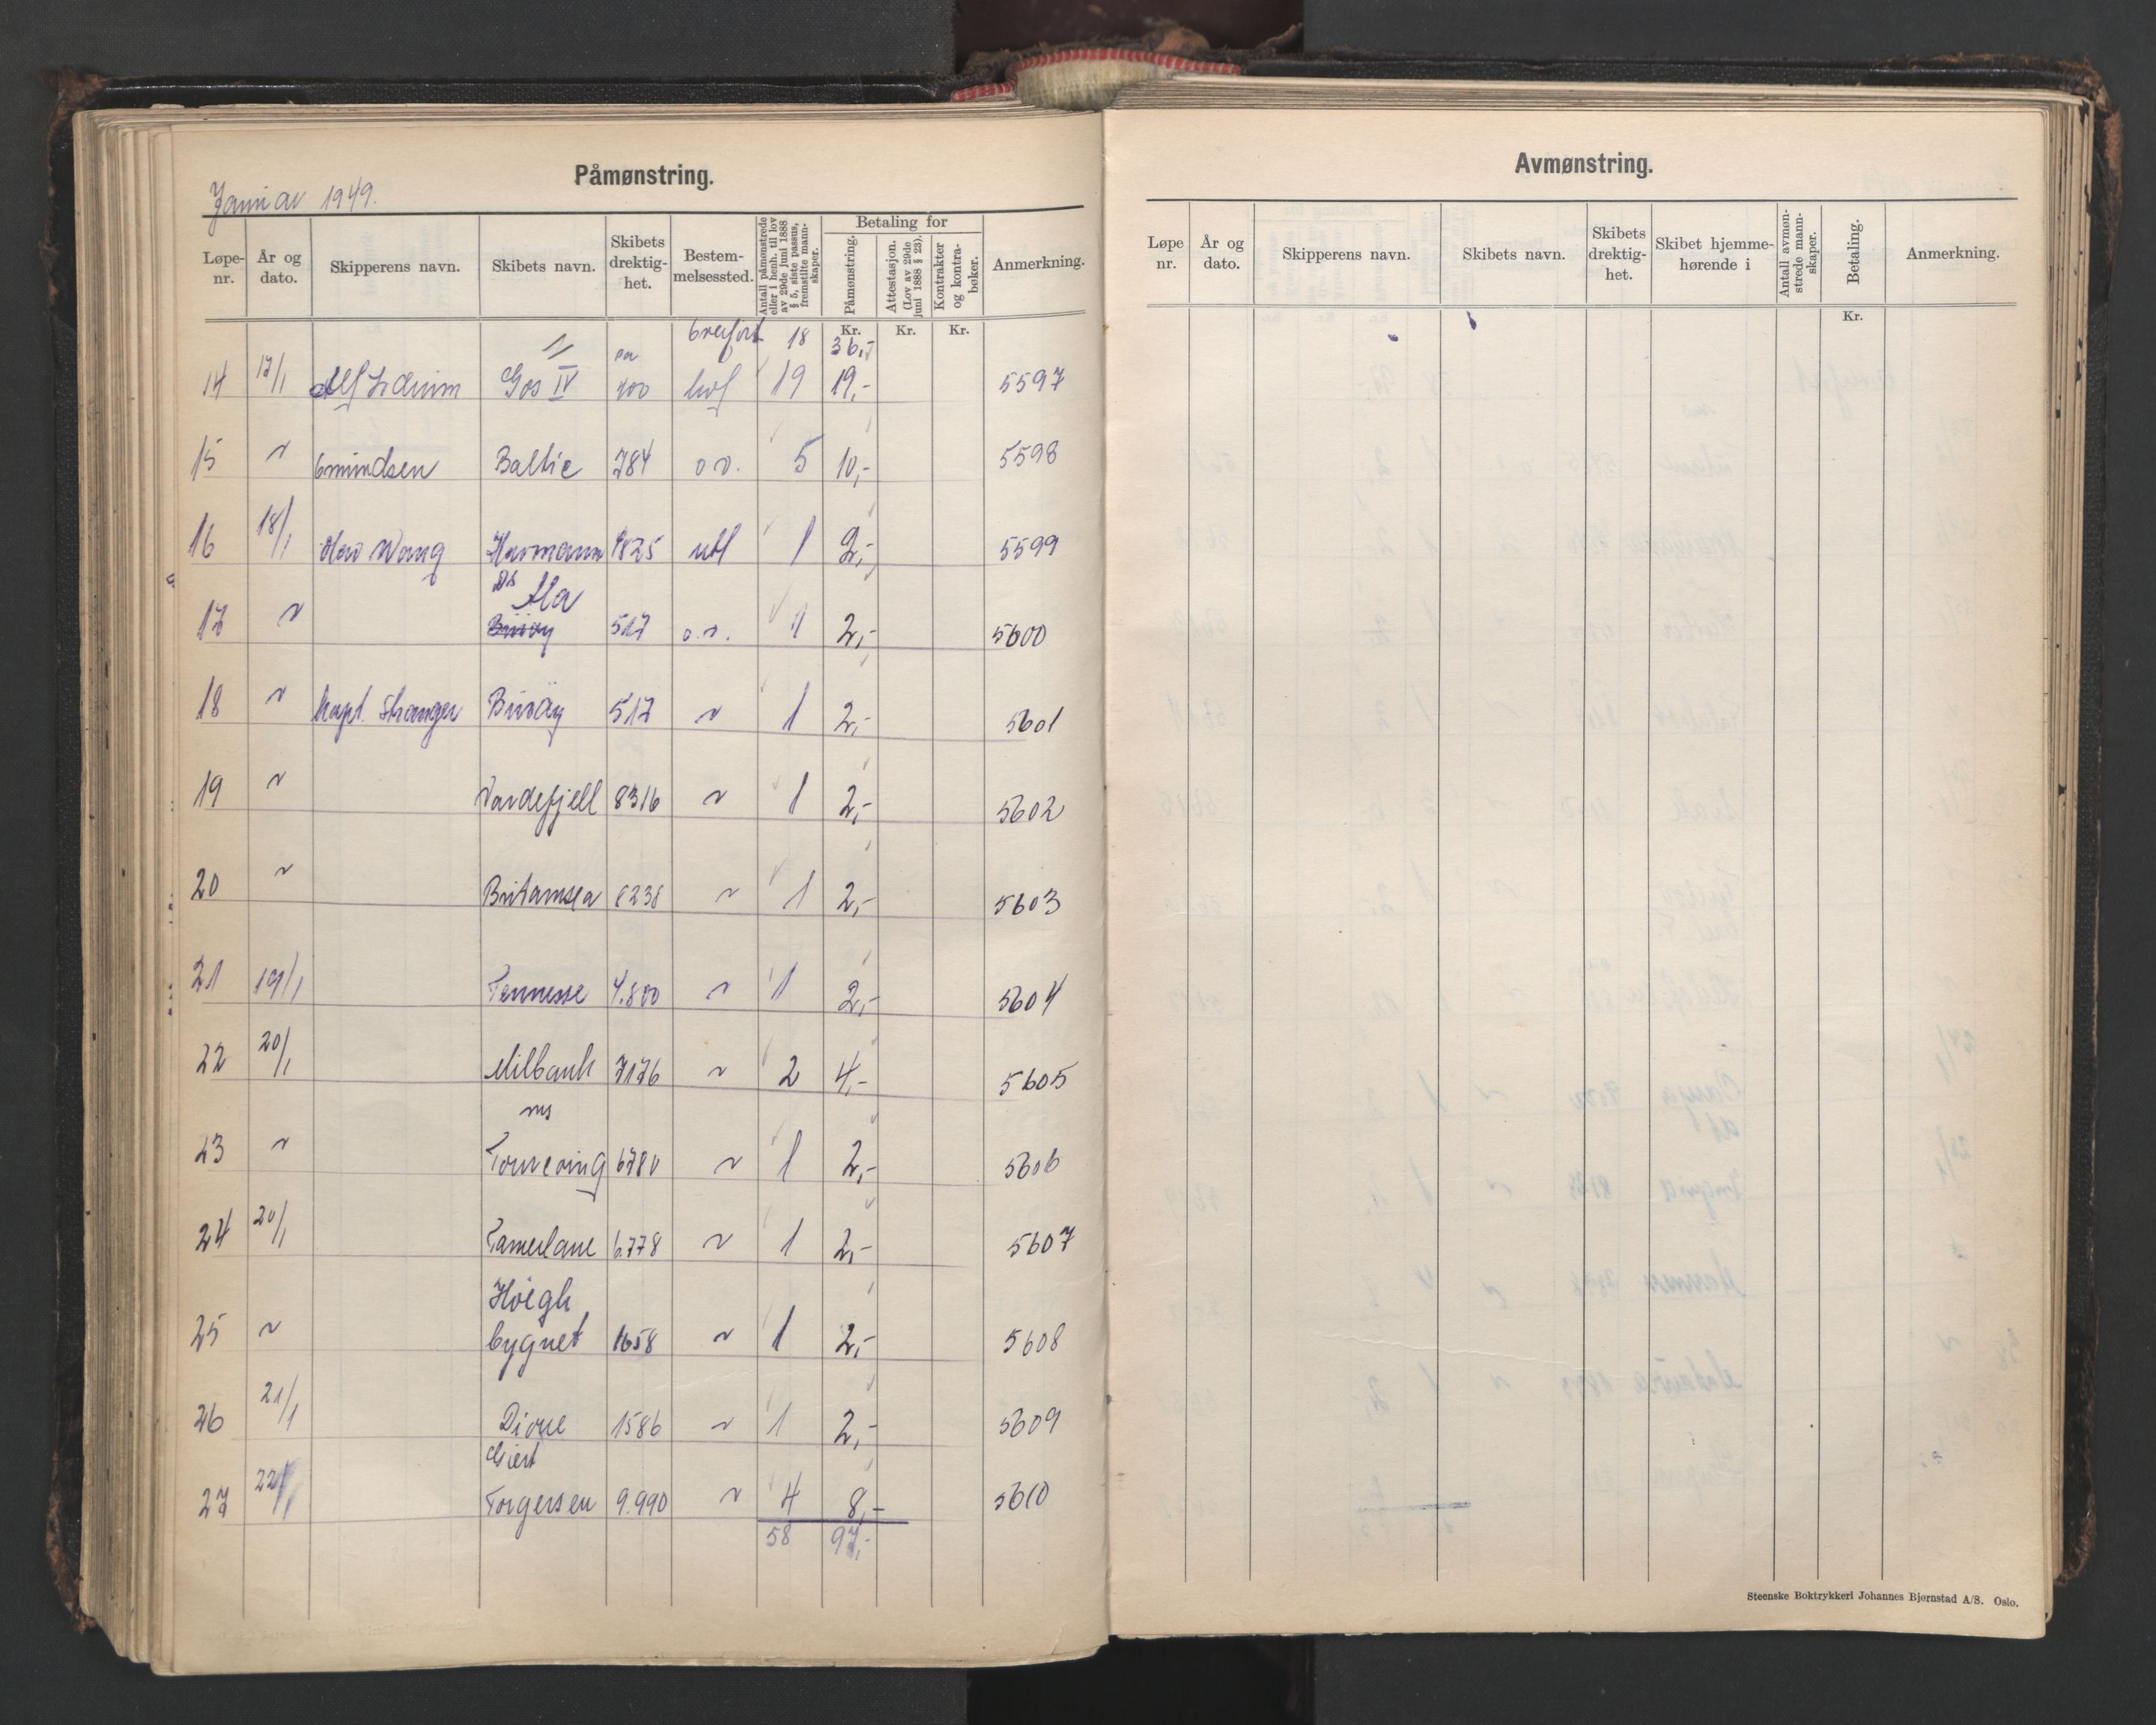 Påmønstring.
Januar 1949.
Løpe-nr. År og dato. Skipperens navn. Skibets navn. Skibets drektig-het. Bestem-melsessted. Antall påmønstrede eller i henh. til lov av 29de juni 1888 § 5, siste passus, fremstilte mann-skaper. Betaling for Påmønstring. Attestasjon. (Lov av 29de juni 1888 § 23). Kontrakter og kontra-bøker. Anmerkning.
Kr. Kr. Kr.
overført 18 36,-
14 17/1 Alf Gos IV 400 hvf 19 19,- 5597
15 " Baltic 784 o.v. 5 10,- 5598
16 18/1 Olav Wang 1825 utl 1 2,- 5599
DS Ala
17 " 517 o.v. 1 2,- 5600
18 " Kapt. Stranger Bisöy 517 " 1 2,- 5601
19 " Vardefjell 8316 " 1 2,- 5602
20 " Britamsea 8238 " 1 2,- 5603
21 19/1 Tennesse 4.800 " 1 2,- 5604
22 20/1 Milbank 7176 " 2 4,- 5605
ms
23 " 6780 " 1 2,- 5606
24 20/1 Tamerlane 6.778 " 1 2,- 5607
Höegh
25 " Cygnet 1658 " 1 2,- 5608
26 21/1 Dione 1586 " 1 2,- 5609
Giert
27 22/1 Torgersen 9.990 " 4 8,- 5610
58 97,-
Avmønstring.
Løpe nr. År og dato. Skipperens navn. Skibets navn. Skibets drektig-het. Skibet hjemme-hørende i Antall avmøn-strede mann-skaper. Betaling. Anmerkning.
Kr.
Steenske Boktrykkeri Johannes Bjørnstad A/S. Oslo.